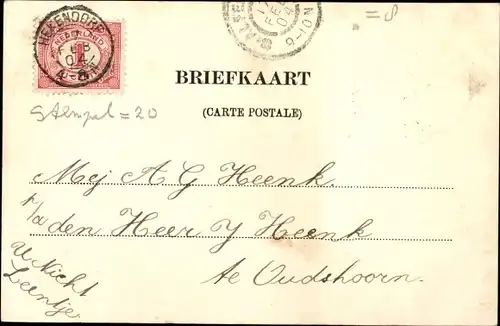 HEKENDORP
FEB
04
NEDERLAND
1
12
FEB
04
9-10N
= 8
BRIEFKAART
(CARTE POSTALE)
Stempel = 20
Mej A G Heenk.
p/a den Heer J Heenk
te Oudshoorn.
Uw Nicht
Leentje